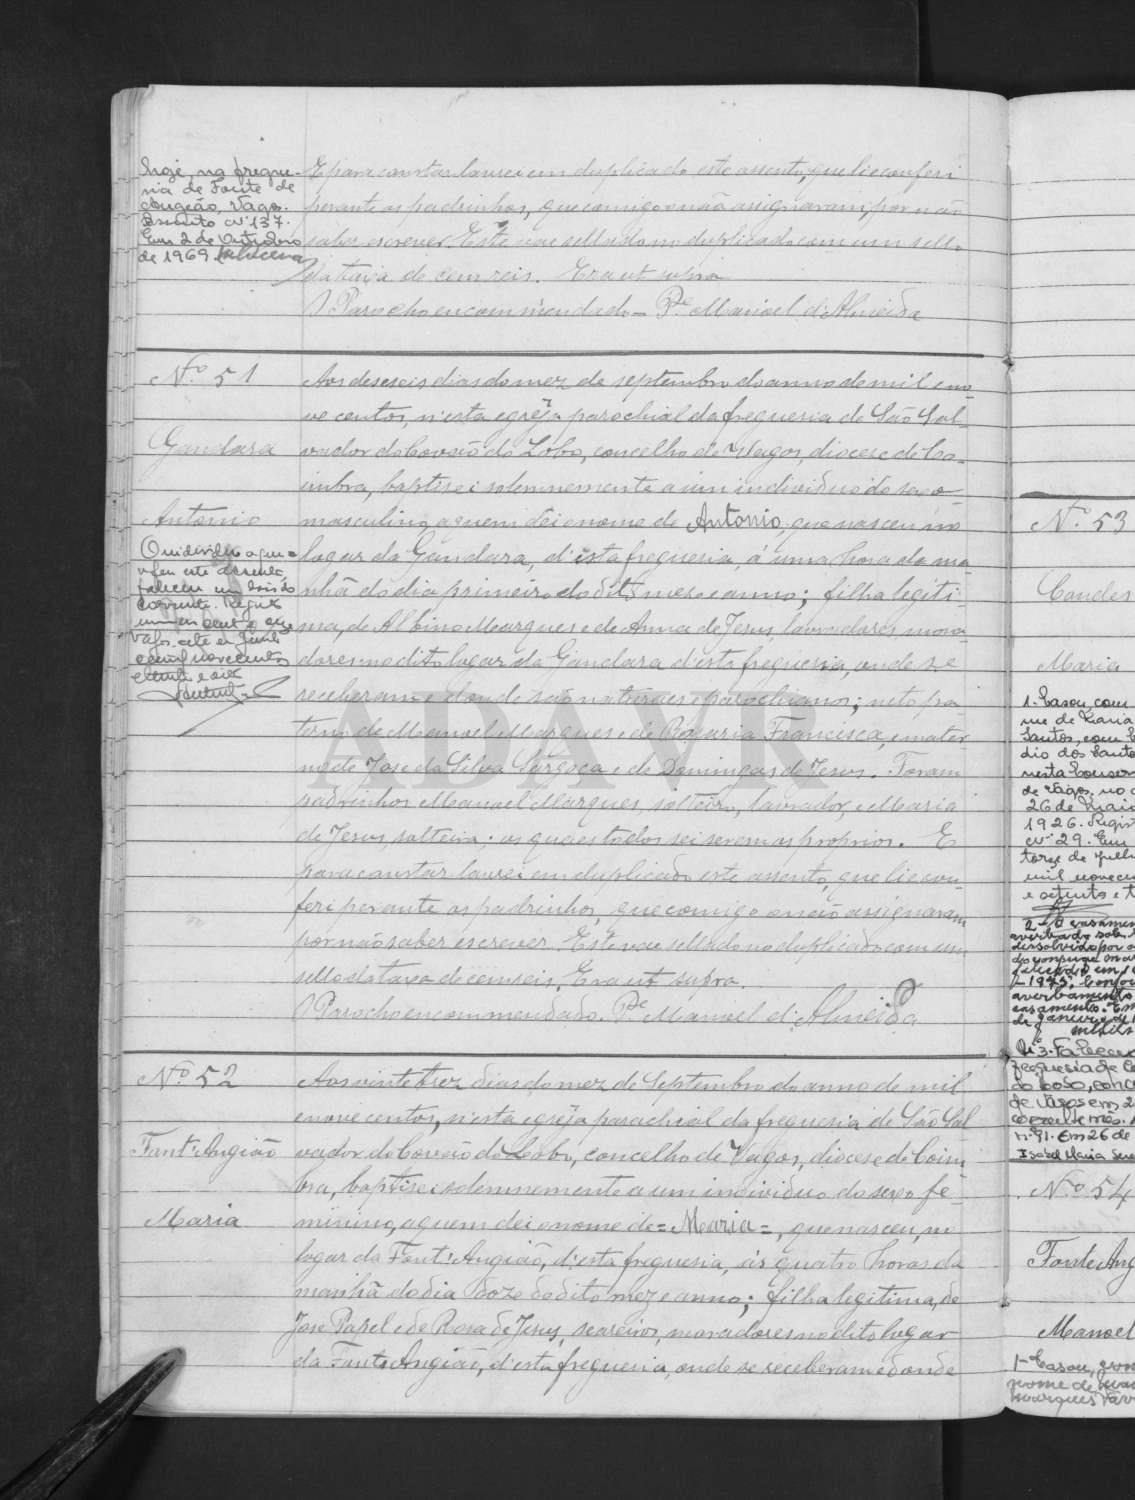 hoje, na fregue-
sia de Fonte de
Angeão, Vagos.
Assento nº 137.
Em 2 de Outubro
de 1969
E para constar lavrei em duplicado este assento, que li e conferi
perante os padrinhos, que comigo não assignaram, por não
saber escrever. Este vae sellado no duplicado com um sello
da taxa de cem reis. Era ut supra
O Parocho encommendado - Pe. Manoel d'Almeida
Nº 51
Gandara
Antonio
O individuo a que
refere este assento
faleceu
corrente. Registo
Vagos, sete de Junho
de mil novecentos
Aos deseseis dias do mez de septembro do anno de mil e no-
ve centos, n'esta egreja parochial da freguesia de São Sal-
vador do Covão do Lobo, concelho de Vagos, diocese de Co-
imbra, baptisei solemnemente a um individuo do sexo
masculino, a quem dei o nome de Antonio, que nasceu no
logar da Gandara, d'esta freguesia, á uma hora da ma-
nhã do dia primeiro do dito mez e anno; filho legiti-
mo, de Albino Marques e de Anna de Jesus, lavradores, mora-
dores no dito logar da Gandara d'esta freguesia, onde se
receberam e donde são naturaes e parochianos; neto pa-
terno de Manoel Marques e de Rosaria Francisca, e mater-
no de Jose da Silva Sargoça e de Domingas de Jesus. Foram
padrinhos Manoel Marques, solteiro, lavrador, e Maria
de Jesus, solteira; os quaes todos sei serem os proprios. E
para constar lavrei em duplicado este assento, que li e con-
feri perante os padrinhos, que comigo não assignaram
por não saber escrever. Este vae sellado no duplicado com um
sello da taxa de cem reis. Era ut supra.
O Parocho encommendado. Pe. Manoel d'Almeida
Nº 52
Font'Angião
Maria
Aos vinte e trez dias do mez de Septembro do anno de mil
e nove centos, n'esta egreja parochial da freguesia de São Sal
vador do Covão do Lobo, concelho de Vagos, diocese de Coim
bra, baptisei solemnemente a um individuo do sexo fe-
minino, a quem dei o nome de = Maria =, que nasceu, no
logar da Font'Angião, d'esta freguesia, ás quatro horas da
manhã do dia doze do dito mez e anno; filha legitima, de
Jose Papel e de Rosa de Jesus, seareiros, moradores no dito logar
da Font'Angião, d'esta freguesia, onde se receberam e donde
ADAVR
Nº 53
Condes
Maria
1- Casou, com
me de Maria
Santos, com
dio dos Santo
nesta Conser
de Vagos, no
26 de Maio
1926. Regist
nº 29. Em
torze de Julh
mil novecen
e setenta e t
2 - O casamen
averbado sob
dissolvido por
do conjuge
falecido em
1973. Confor
averbamento
casamento. Em
de Janeiro de
Nº 3 - Faleceu
freguesia de
do Lobo, conc
de Vagos em 2
corrente mês.
nº 91. Em 26 de
Isabel Maria
Nº 54
Fonte Ang
Manoel
1- Casou,
nome de
Marques